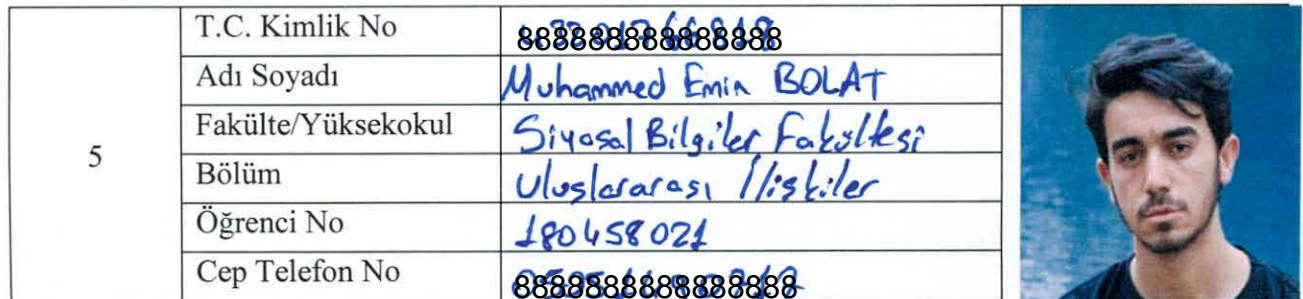 5
T.C. Kimlik No
Adı Soyadı Muhammed Emin BOLAT
Fakülte/Yüksekokul Siyasal Bilgiler Fakültesi
Bölüm Uluslararası İlişkiler
Öğrenci No 180458021
Cep Telefon No